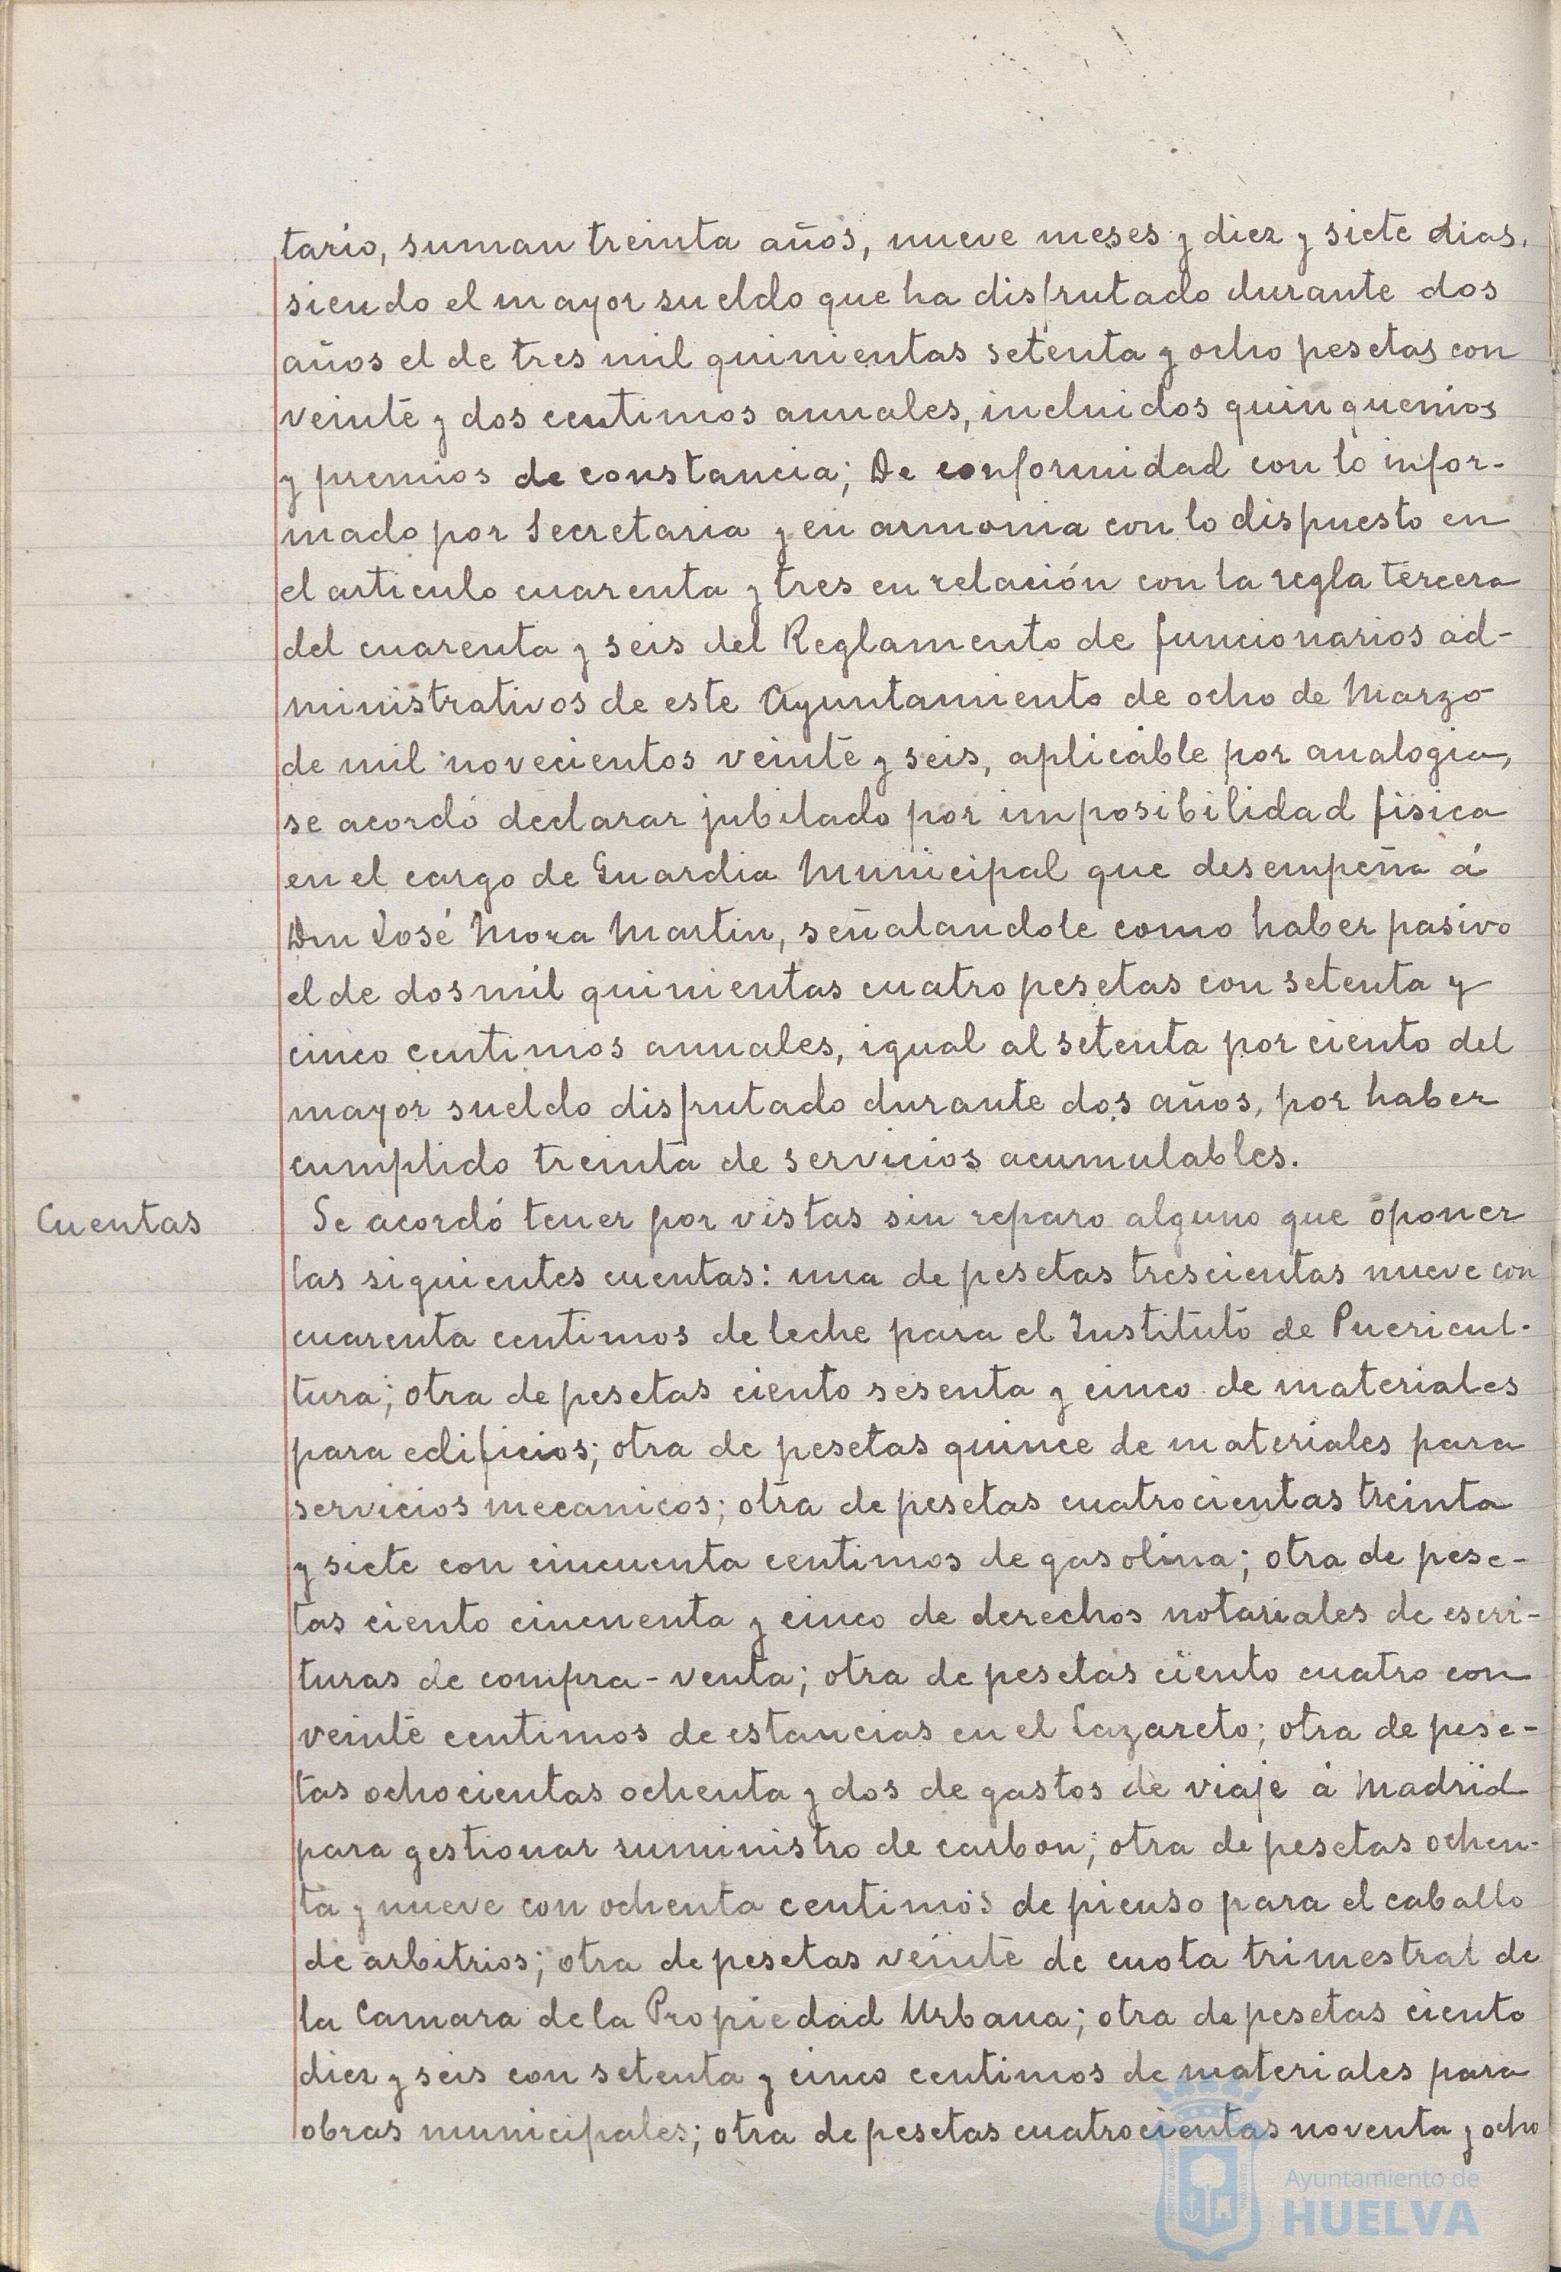 tario, suman treinta años, nueve meses y diez y siete dias,
siendo el mayor sueldo que ha disfrutado durante dos
años el de tres mil quinientas setenta y ocho pesetas con
veinte y dos centimos anuales, incluidos quinquenios
y premios de constancia; De conformidad con lo infor-
mado por Secretaria y en armonia con lo dispuesto en
el articulo cuarenta y tres en relación con la regla tercera
del cuarenta y seis del Reglamento de funcionarios ad-
ministrativos de este Ayuntamiento de ocho de Marzo
de mil novecientos veinte y seis, aplicable por analogia,
se acordó declarar jubilado por imposibilidad fisica
en el cargo de Guardia Municipal que desempeña á
Don José Mora Martin, señalandole como haber pasivo
el de dos mil quinientas cuatro pesetas con setenta y
cinco centimos anuales, igual al setenta por ciento del
mayor sueldo disfrutado durante dos años, por haber
cumplido treinta de servicios acumulables.
Cuentas
Se acordó tener por vistas sin reparo alguno que oponer
las siguientes cuentas: una de pesetas trescientas nueve con
cuarenta centimos de leche para el Instituto de Puericul-
tura; otra de pesetas ciento sesenta y cinco de materiales
para edificios; otra de pesetas quince de materiales para
servicios mecanicos; otra de pesetas cuatrocientas treinta
y siete con cincuenta centimos de gasolina; otra de pese-
tas ciento cincuenta y cinco de derechos notariales de escri-
turas de compra-venta; otra de pesetas ciento cuatro con
veinte centimos de estancias en el Lazareto; otra de pese-
tas ochocientas ochenta y dos de gastos de viaje á Madrid
para gestionar suministro de carbon; otra de pesetas ochen-
ta y nueve con ochenta centimos de pienso para el caballo
de arbitrios; otra de pesetas veinte de cuota trimestral de
la Camara de la Propiedad Urbana; otra de pesetas ciento
diez y seis con setenta y cinco centimos de materiales para
obras municipales; otra de pesetas cuatrocientas noventa y ocho
Ayuntamiento de
HUELVA